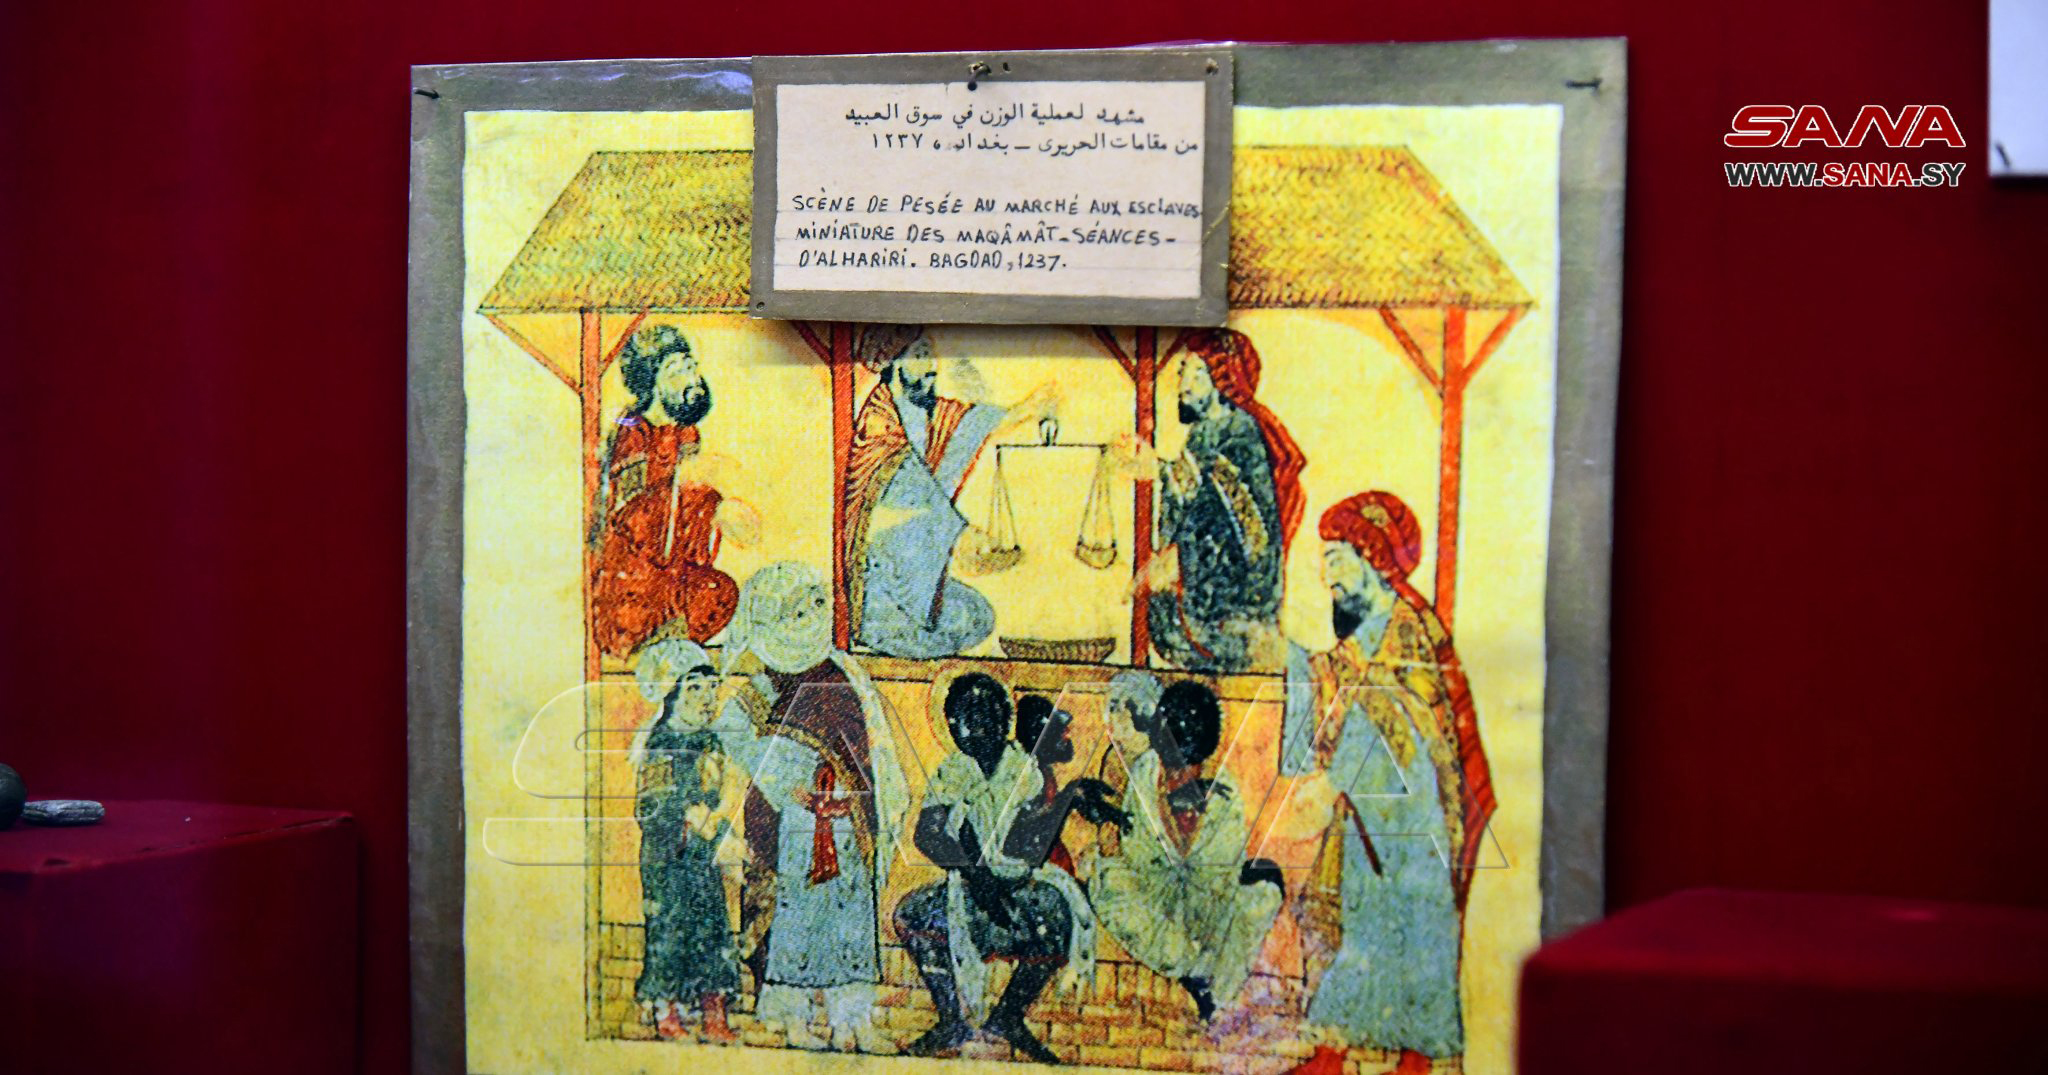 مشهد لعملية الوزن في سوق العبيد
من مقامات الحريرى – بغداد، ١٢٣٧
SCÈNE DE PESÉE AU MARCHÉ AUX ESCLAVES
MINIATURE DES MAQÂMÂT-SÉANCES-
D'ALHARIRI. BAGDAD, 1237.
SANA
WWW.SANA.SY
SANA